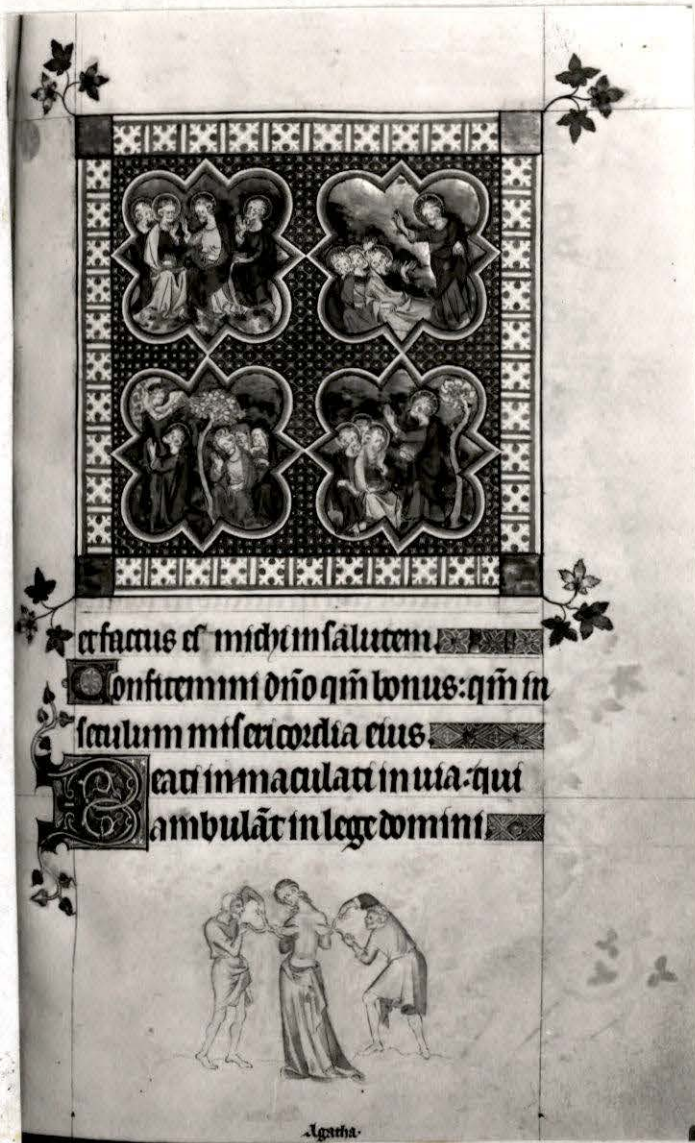 et factus es michi in salutem.
Confitemini dño qm̃ bonus: qm̃ in
seculum misericordia eius.
Beati inmaculati in uia: qui
ambulãt in lege domini.
Agatha.